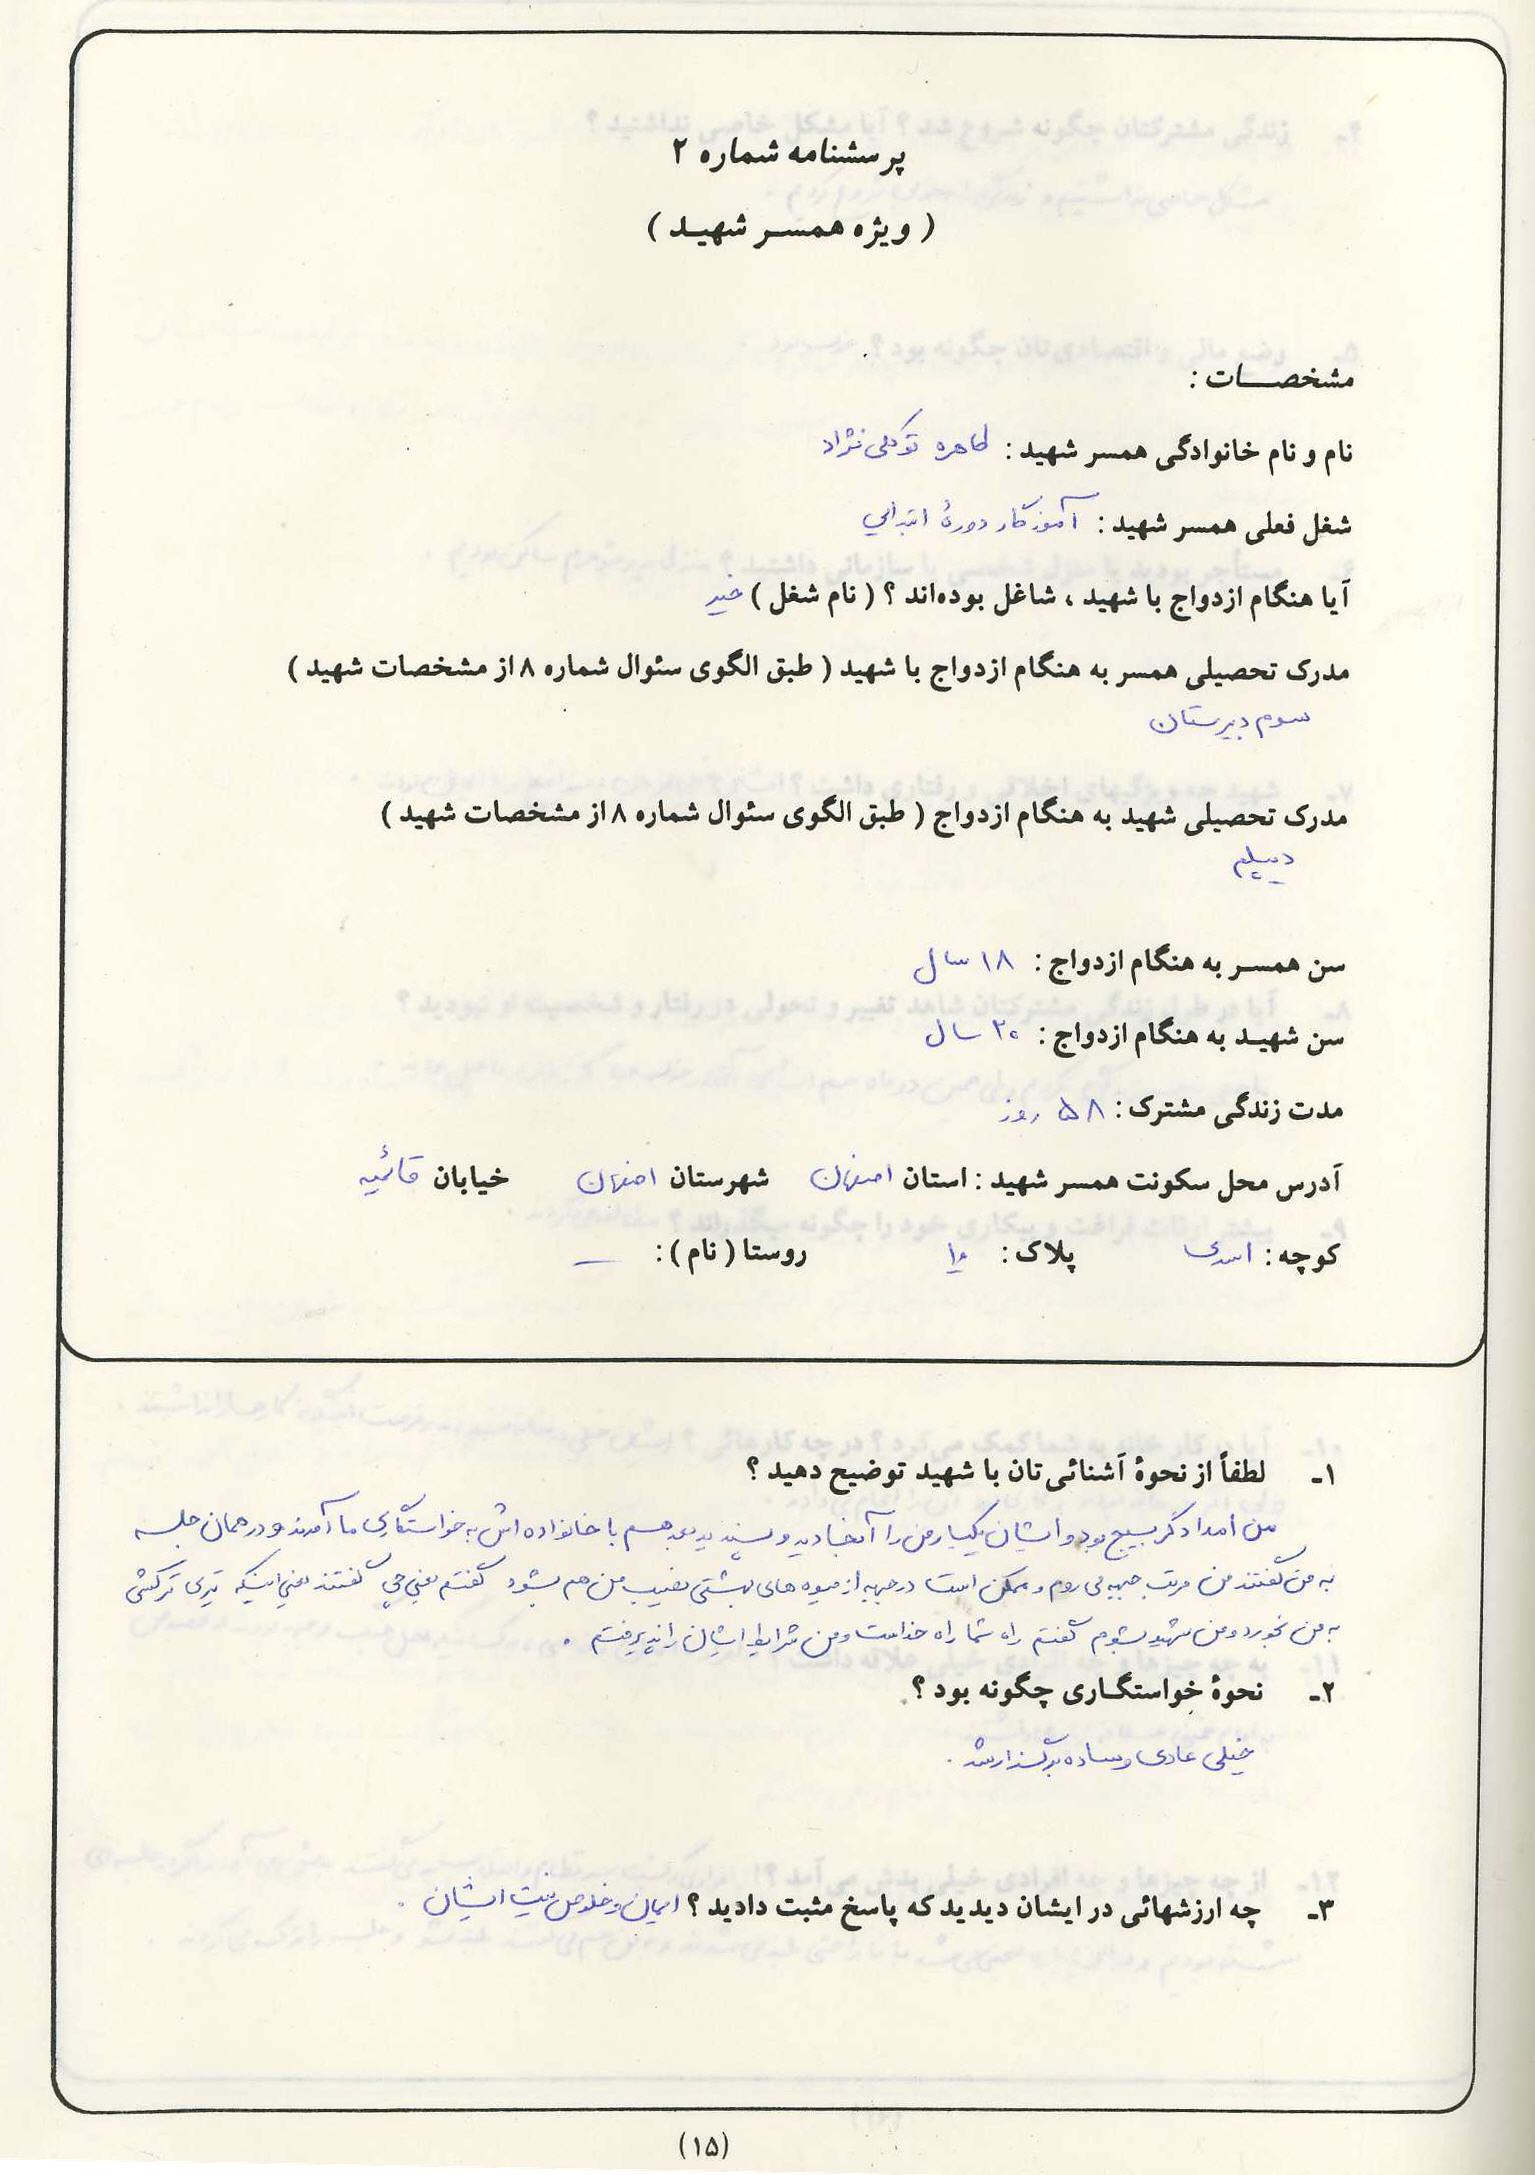 پرسشنامه شماره ۲
( ویژه همسر شهید )
مشخصات :
نام و نام خانوادگی همسر شهید : طاهره توکلی نژاد
شغل فعلی همسر شهید : آموزگار دورهٔ ابتدایی
آیا هنگام ازدواج با شهید ، شاغل بوده‌اند ؟ ( نام شغل ) خیر
مدرک تحصیلی همسر به هنگام ازدواج با شهید ( طبق الگوی سئوال شماره ۸ از مشخصات شهید )
سوم دبیرستان
مدرک تحصیلی شهید به هنگام ازدواج ( طبق الگوی سئوال شماره ۸ از مشخصات شهید )
دیپلم
سن همسر به هنگام ازدواج : ۱۸ سال
سن شهید به هنگام ازدواج : ۲۰ سال
مدت زندگی مشترک : ۵۸ روز
آدرس محل سکونت همسر شهید : استان اصفهان شهرستان اصفهان خیابان قائمیه
کوچه : اسدی پلاک : ۱۰ روستا ( نام ) : —
۱- لطفاً از نحوهٔ آشنائی تان با شهید توضیح دهید ؟
من امدادگر بسیج بودم و ایشان یکبار من را آنجا دید و پسندید بعد هم با خانواده اش به خواستگاری ما آمدند و در همان جلسه
به من گفتند من مرتب جبهه می روم و ممکن است در جبهه از میوه های بهشتی نصیب من هم بشود گفتم یعنی چی گفتند یعنی اینکه تیری ترکشی
به من بخورد و من شهید بشوم گفتم راه شما راه خداست و من شرایط ایشان را پذیرفتم .
۲- نحوهٔ خواستگاری چگونه بود ؟
خیلی عادی و ساده برگذار شد .
۳- چه ارزشهائی در ایشان دیدید که پاسخ مثبت دادید ؟ ایمان و خلوص نیت ایشان .
(۱۵)